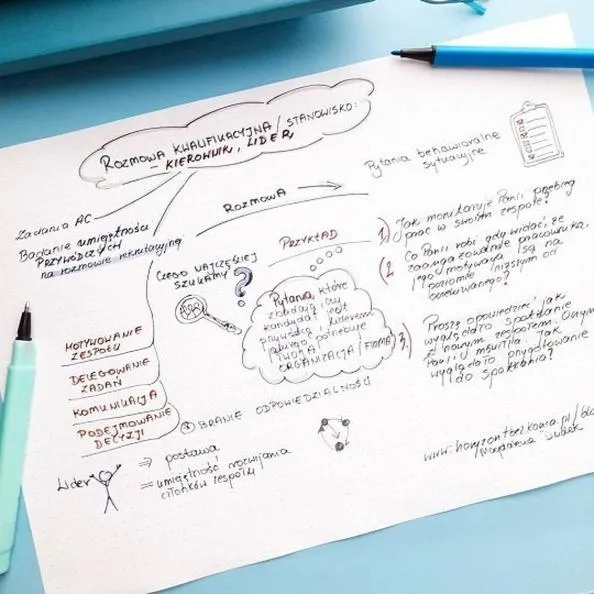 ROZMOWA KWALIFIKACYJNA / STANOWISKO:
- KIEROWNIK, LIDER
Zadania AC
Badanie umiejętności
PRZYWÓDCZYCH
na rozmowie rekrutacyjnej
MOTYWOWANIE
ZESPOŁU
DELEGOWANIE
ZADAŃ
KOMUNIKACJA
PODEJMOWANIE
DECYZJI
ROZMOWA
CZEGO NAJCZĘŚCIEJ
SZUKAMY
?
PRZYKŁAD
Pytania, które
zbadają czy
kandydat jest
przywódcą i liderem
jakiego potrzebuje
TWOJA
ORGANIZACJA / FIRMA
BRANIE ODPOWIEDZIALNOŚCI
Lider
⇒ postawa
= umiejętność rozwijania
członków zespołu
Pytania behawioralne
sytuacyjne
1) Jak monitoruje Pan/i przebieg
prac w swoim zespole?
2. Co Pan/i robi gdy widać, że
zaangażowanie pracownika,
jego motywacja są na
poziomie niższym od
oczekiwanego?
3. Proszę opowiedzieć jak
wyglądało spotkanie
z nowym zespołem. O czym
Pan/i mówił/a. Jak
wyglądało przygotowanie
do spotkania?
www.horyzontbezkonca.pl/
Magdalena